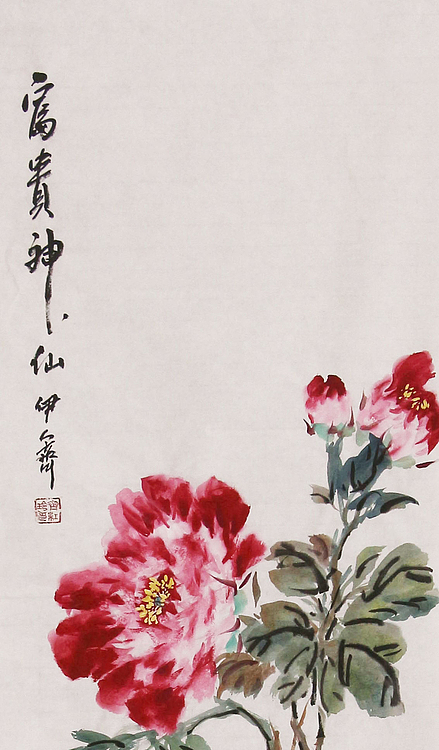 富貴神仙伊齊